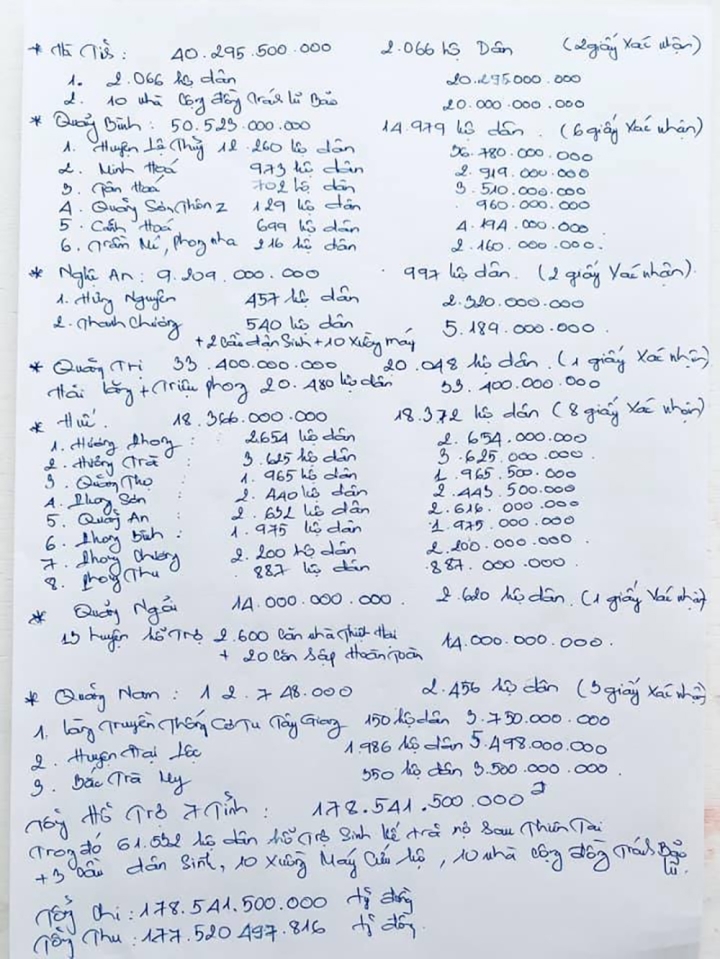 * Hà Tĩnh : 40.295.500.000 2.066 hộ Dân (2 giấy xác nhận)
1. 2.066 hộ dân 20.295.000.000
2. 10 nhà Cộng đồng tránh lũ Bão 20.000.000.000
* Quảng Bình : 50.523.000.000 14.979 hộ dân. (6 giấy xác nhận)
1. Huyện Lệ Thủy 12.260 hộ dân 36.780.000.000
2. Minh Hoá 973 hộ dân 2.919.000.000
3. Tân Hoá 702 hộ dân 3.510.000.000
4. Quảng Sơn, Thôn 2 129 hộ dân 960.000.000
5. Cảnh Hoá 699 hộ dân 4.194.000.000
6. Trằm Mé, Phong nha 216 hộ dân 2.160.000.000.
* Nghệ An : 9.209.000.000 997 hộ dân. (2 giấy xác nhận).
1. Hưng Nguyên 457 hộ dân 2.320.000.000
2. Thanh Chương 540 hộ dân 5.189.000.000.
+ 2 Cầu dân Sinh + 10 xuồng máy
* Quảng Trị 33.400.000.000 20.048 hộ dân. (1 giấy xác nhận)
Hải Lăng + Triệu Phong 20.480 hộ dân 33.400.000.000
* Huế. 18.366.000.000 18.372 hộ dân (8 giấy xác nhận)
1. Hương Phong : 2654 hộ dân 2.654.000.000
2. Hương Trà : 3.625 hộ dân 3.625.000.000.
3. Quảng Thọ : 1.965 hộ dân 1.965.500.000
4. Phong Sơn : 2.440 hộ dân 2.443.500.000
5. Quảng An : 2.632 hộ dân 2.616.000.000
6. Phong Bình : 1.975 hộ dân 1.975.000.000
7. Phong Chương 2.200 hộ dân 2.200.000.000.
8. Phong Thu 887 hộ dân 887.000.000.
* Quảng Ngãi 14.000.000.000. 2.620 hộ dân. (1 giấy xác nhận)
13 huyện hỗ Trợ 2.600 Căn nhà Thiệt Hại 14.000.000.000.
+ 20 Căn Sập Hoàn Toàn
* Quảng Nam : 12.748.000 2.456 hộ dân (3 giấy xác nhận)
1. Làng Truyền Thống Cơ Tu Tây Giang 150 hộ dân 3.750.000.000
2. Huyện Đại Lộc 1.986 hộ dân 5.498.000.000
3. Bắc Trà My 350 hộ dân 3.500.000.000.
Tổng Hỗ Trợ 7 Tỉnh : 178.541.500.000
Trong đó 61.532 hộ dân hỗ Trợ Sinh kế trả nợ Sau Thiên Tai
+ 3 Cầu dân Sinh, 10 Xuồng Máy Cứu hộ, 10 nhà Cộng đồng Tránh Bão lũ.
Tổng Chi : 178.541.500.000 tỷ đồng
Tổng Thu : 177.520.497.816 tỷ đồng.